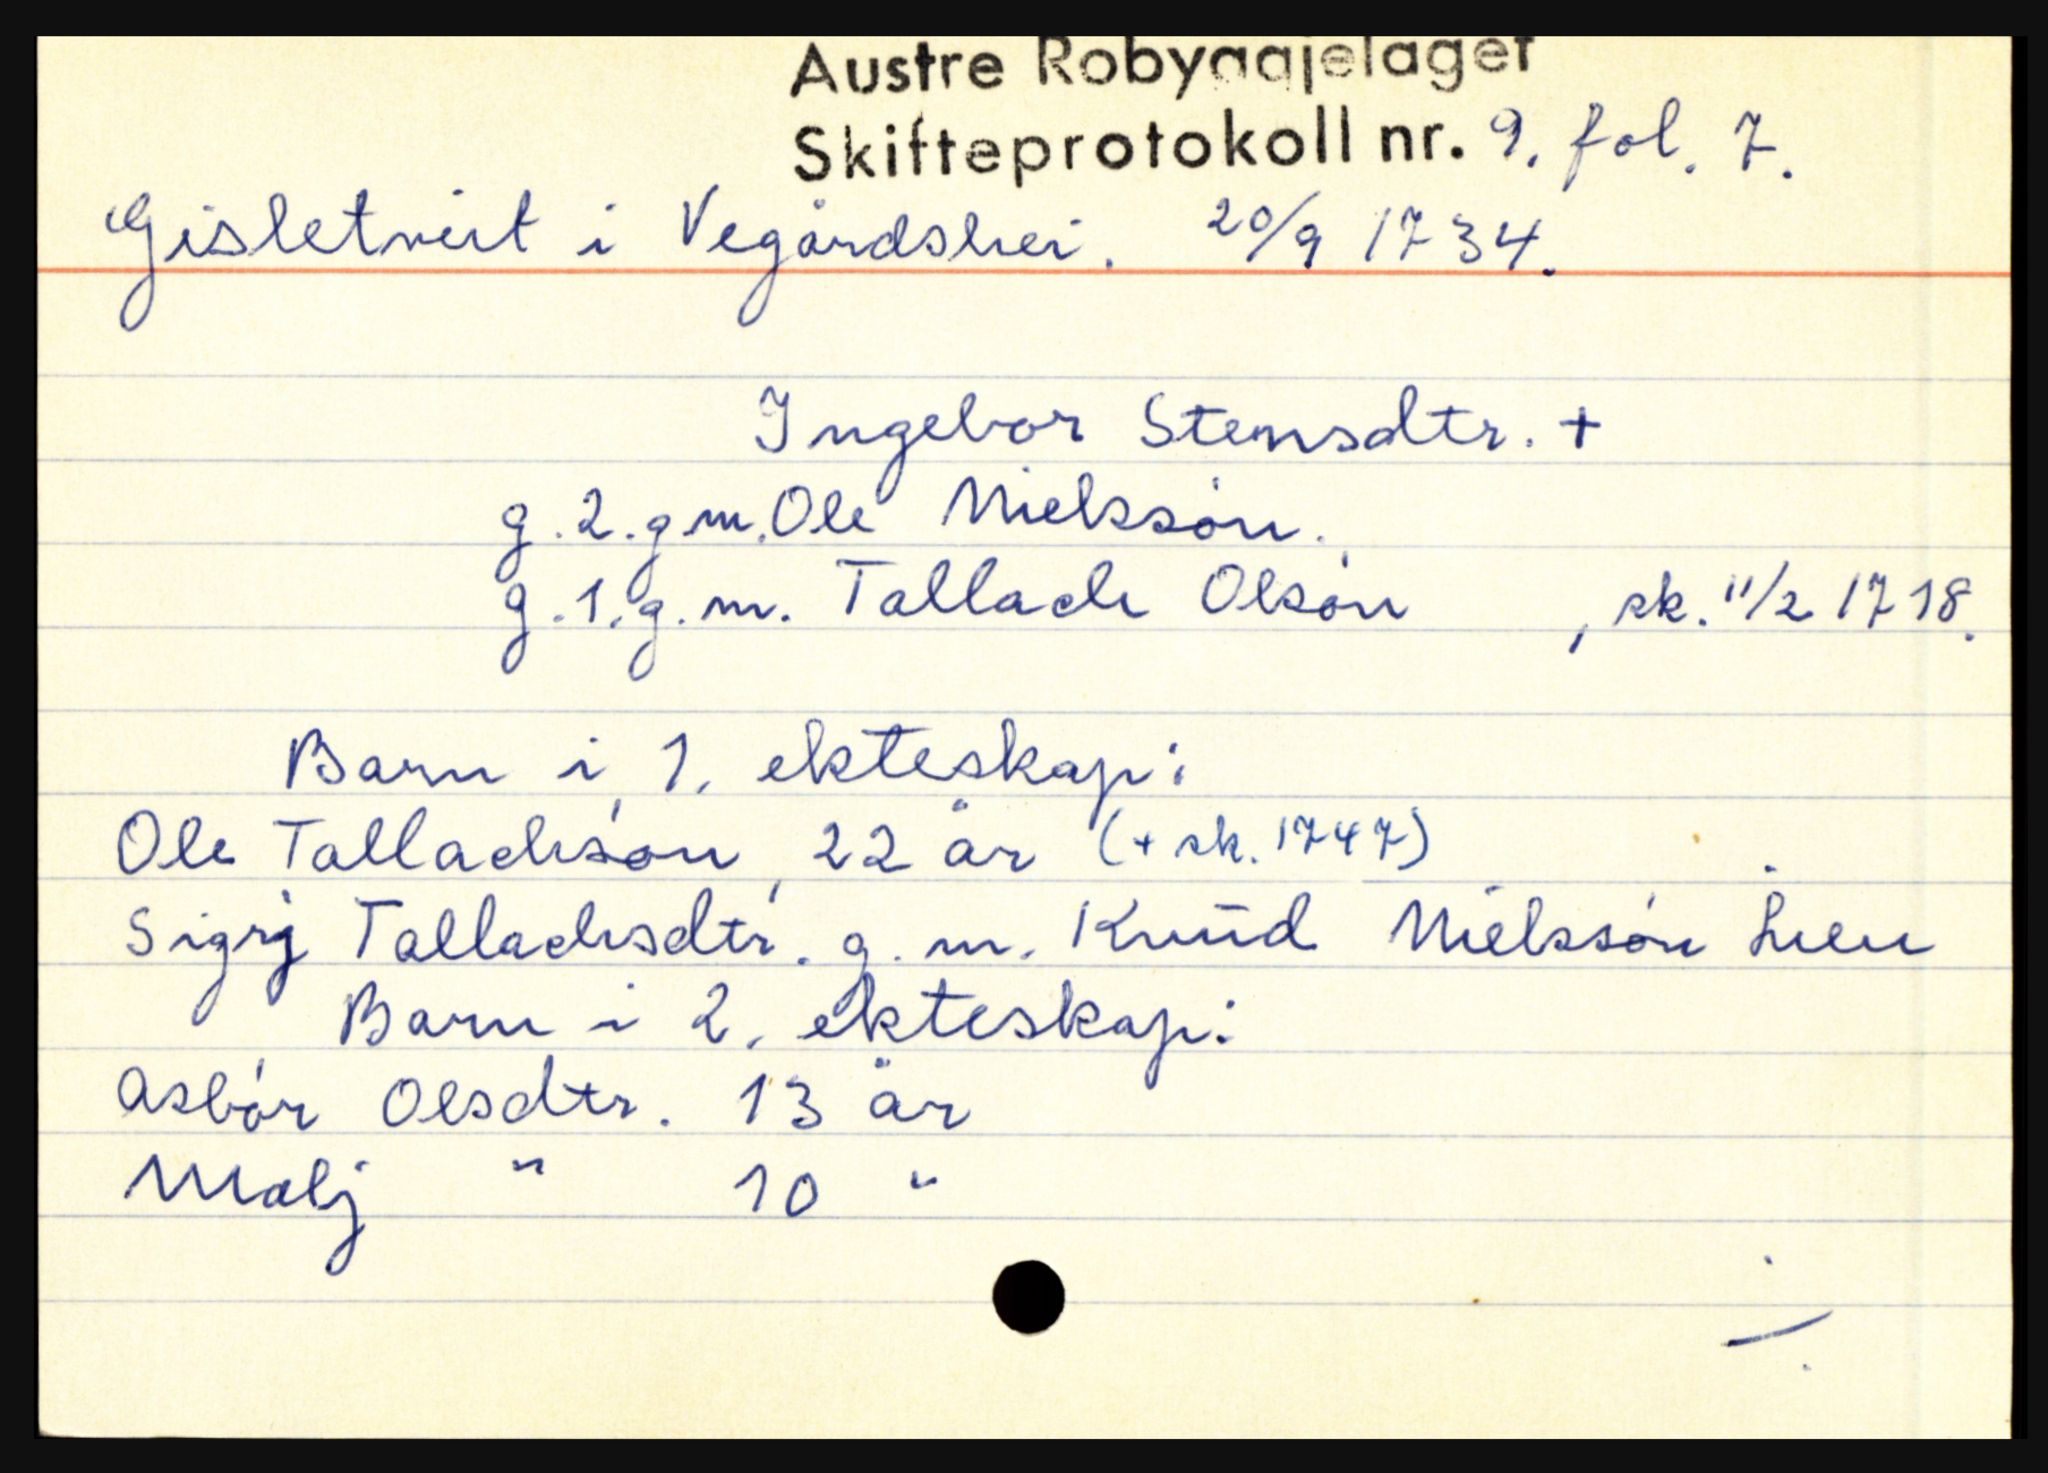 Austre Robyggjelaget
Skifteprotokoll nr. 9. fol. 7.
Gisletveit i Vegårdshei. 20/9 1734.
Ingebor Stensdtr. +
g. 2. g.m. Ole Nielssøn.
g. 1. g. m. Tallach Olsøn , sk. 11/2 1718.
Barn i 1. ekteskap:
Ole Tallachsøn, 22 år (+ sk. 1747)
Sigrj Tallachsdtr. g. m. Knud Nielssøn Lien
Barn i 2. ekteskap:
Asbør Olsdtr. 13 år
Malj " 10 "